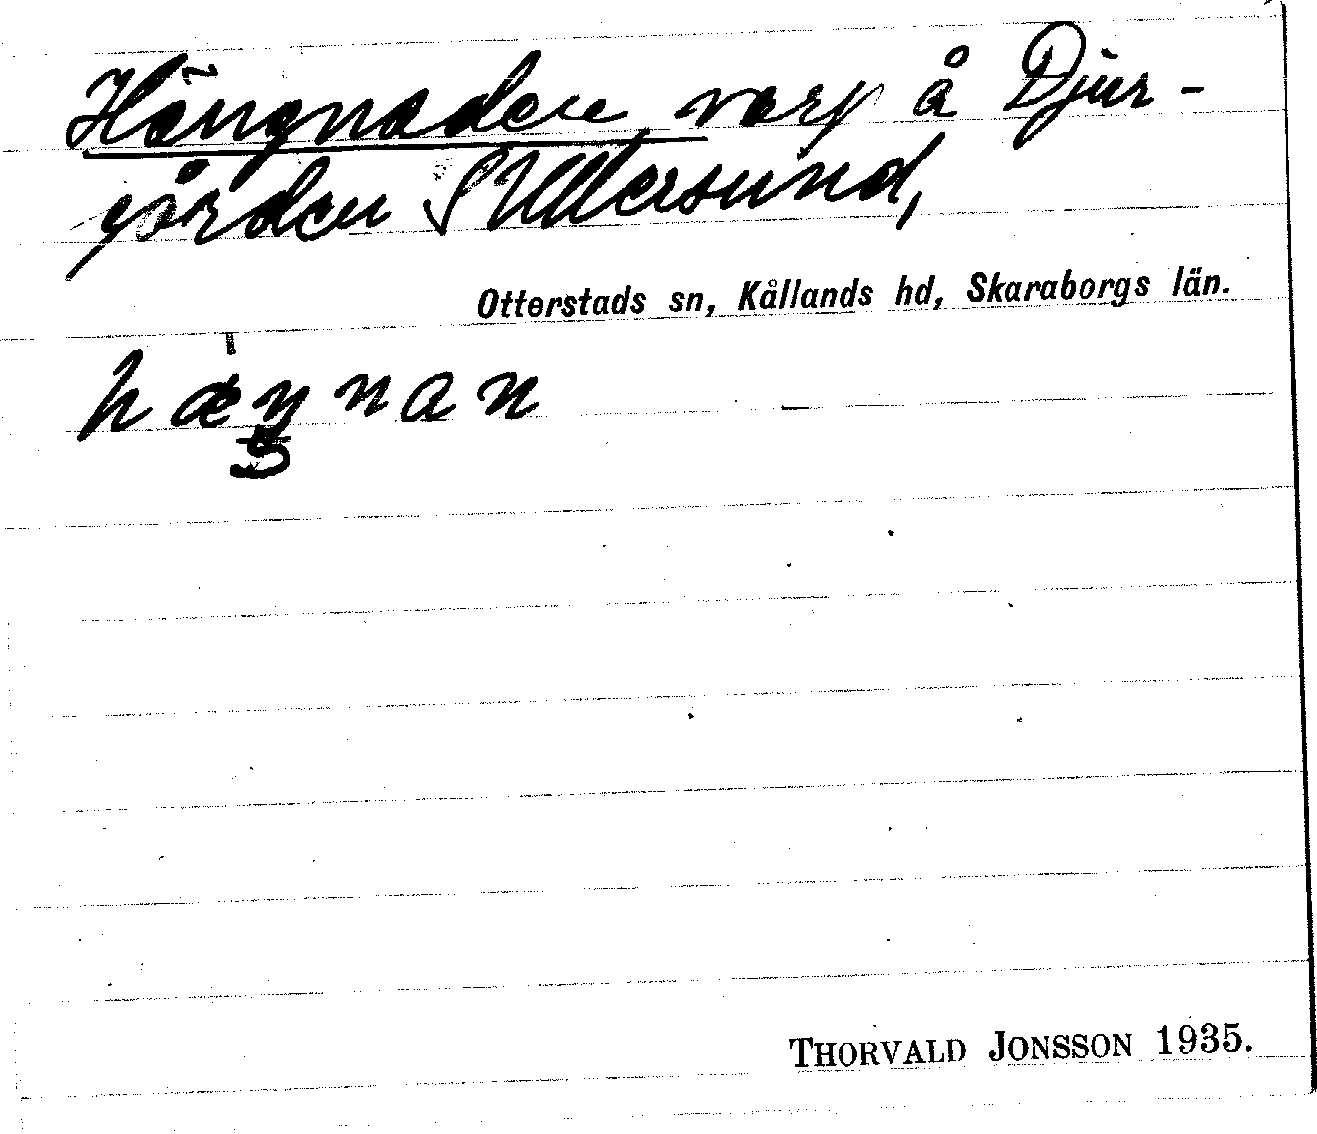 Hängnaden varp å Djur-
gården S Ullersund,
Otterstads sn, Kållands hd, Skaraborgs län.
hæŋnan
5
THORVALD JONSSON 1935.